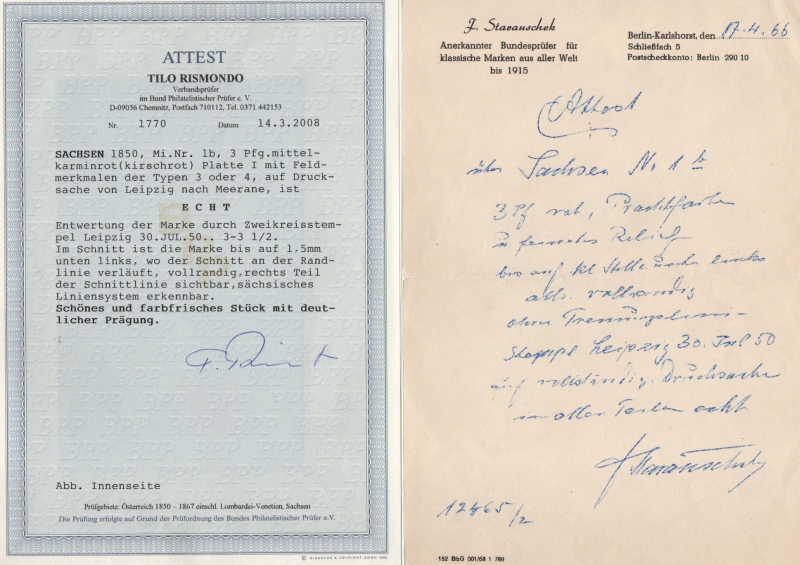 ATTEST
TILO RISMONDO
Verbandsprüfer
im Bund Philatelistischer Prüfer e. V.
D-09056 Chemnitz, Postfach 710112, Tel. 0371 442153
Nr. 1770 Datum 14.3.2008
SACHSEN 1850, Mi.Nr. 1b, 3 Pfg.mittel-
karminrot(kirschrot) Platte I mit Feld-
merkmalen der Typen 3 oder 4, auf Druck-
sache von Leipzig nach Meerane, ist
E C H T
Entwertung der Marke durch Zweikreisstem-
pel Leipzig 30.JUL.50.. 3-3 1/2.
Im Schnitt ist die Marke bis auf 1,5mm
unten links, wo der Schnitt an der Rand-
linie verläuft, vollrandig,rechts Teil
der Schnittlinie sichtbar,sächsisches
Liniensystem erkennbar.
Schönes und farbfrisches Stück mit deut-
licher Prägung.
Abb. Innenseite
Prüfgebiete: Österreich 1850 - 1867 einschl. Lombardei-Venetien, Sachsen
Die Prüfung erfolgte auf Grund der Prüfordnung des Bundes Philatelistischer Prüfer e.V.
J. Starauschek
Anerkannter Bundesprüfer für
klassische Marken aus aller Welt
bis 1915
Berlin-Karlshorst, den 17.4.66
Schließfach 5
Postscheckkonto: Berlin 290 10
Attest
über Sachsen Nr 1 b
3 Pf rot, Prachtfarbe
u feinstes Relief
bis auf kl Stelle links
alls. vollrandig
ohne Trennungslinie
Stempel Leipzig 30. Jul 50
auf vollständig. Drucksache
in allen Teilen echt
12465/2
152 BbG 001/68 1 788